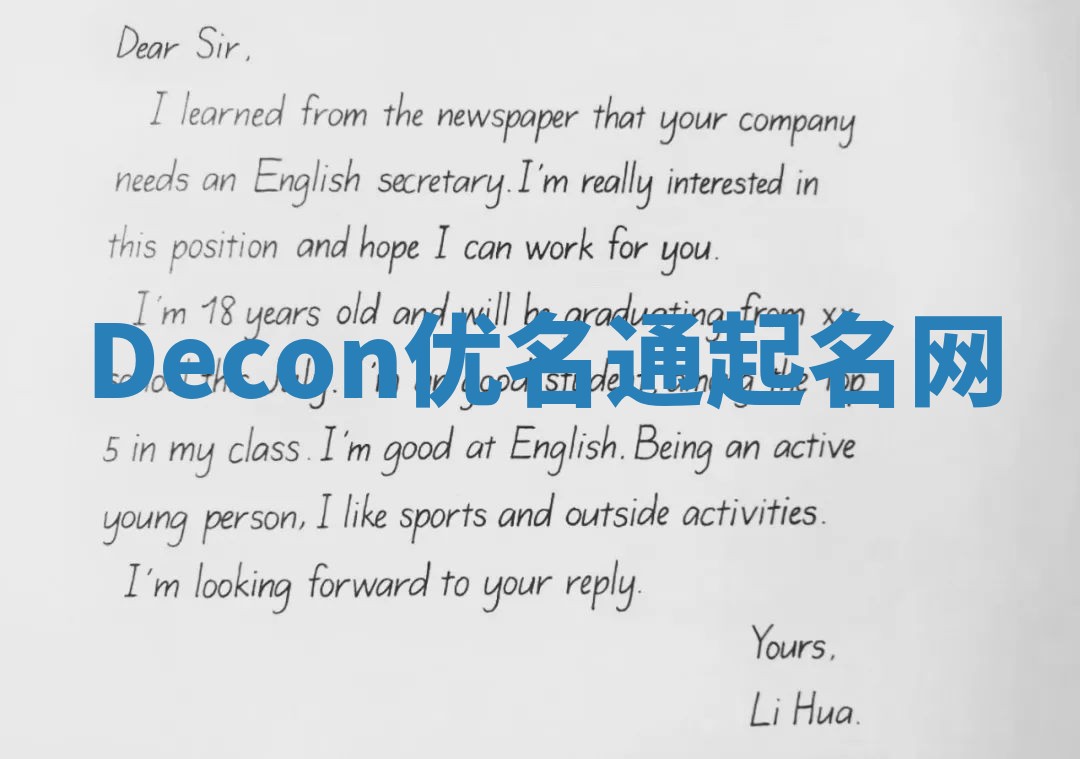 Dear Sir,
I learned from the newspaper that your company
needs an English secretary. I'm really interested in
this position and hope I can work for you.
I'm 18 years old and will be graduating from xx
Decon优名通起名网
school this July. I'm a good student, among the Top
5 in my class. I'm good at English. Being an active
young person, I like sports and outside activities.
I'm looking forward to your reply.
Yours,
Li Hua.